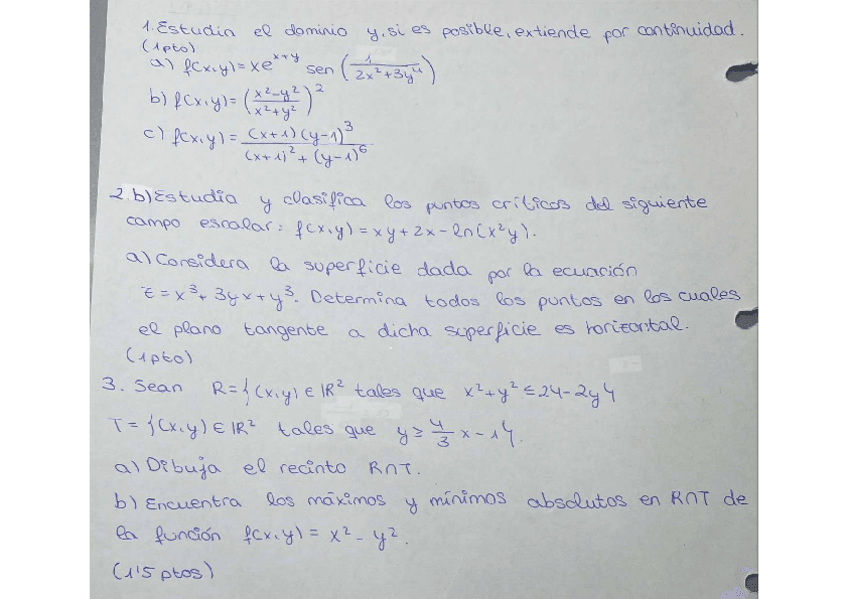 1. Estudia el dominio y, si es posible, extiende por continuidad.
(1pto)
a) f(x,y)=xe^{x+y} sen (1/(2x²+3y⁴))
b) f(x,y)= ((x²-y²)/(x²+y²))²
c) f(x,y)= ((x+1)(y-1)³)/((x+1)²+(y-1)⁶)
2.b) Estudia y clasifica los puntos críticos del siguiente
campo escalar: f(x,y)=xy+2x-ln(x²y).
a) Considera la superficie dada por la ecuación
z=x³+3yx+y³. Determina todos los puntos en los cuales
el plano tangente a dicha superficie es horizontal.
(1pto)
3. Sean R={(x,y)∈ℝ² tales que x²+y²≤24-2y}
T={(x,y)∈ℝ² tales que y≥4/3 x-1}.
a) Dibuja el recinto R∩T.
b) Encuentra los máximos y mínimos absolutos en R∩T de
la función f(x,y)=x²-y².
(1'5 ptos)